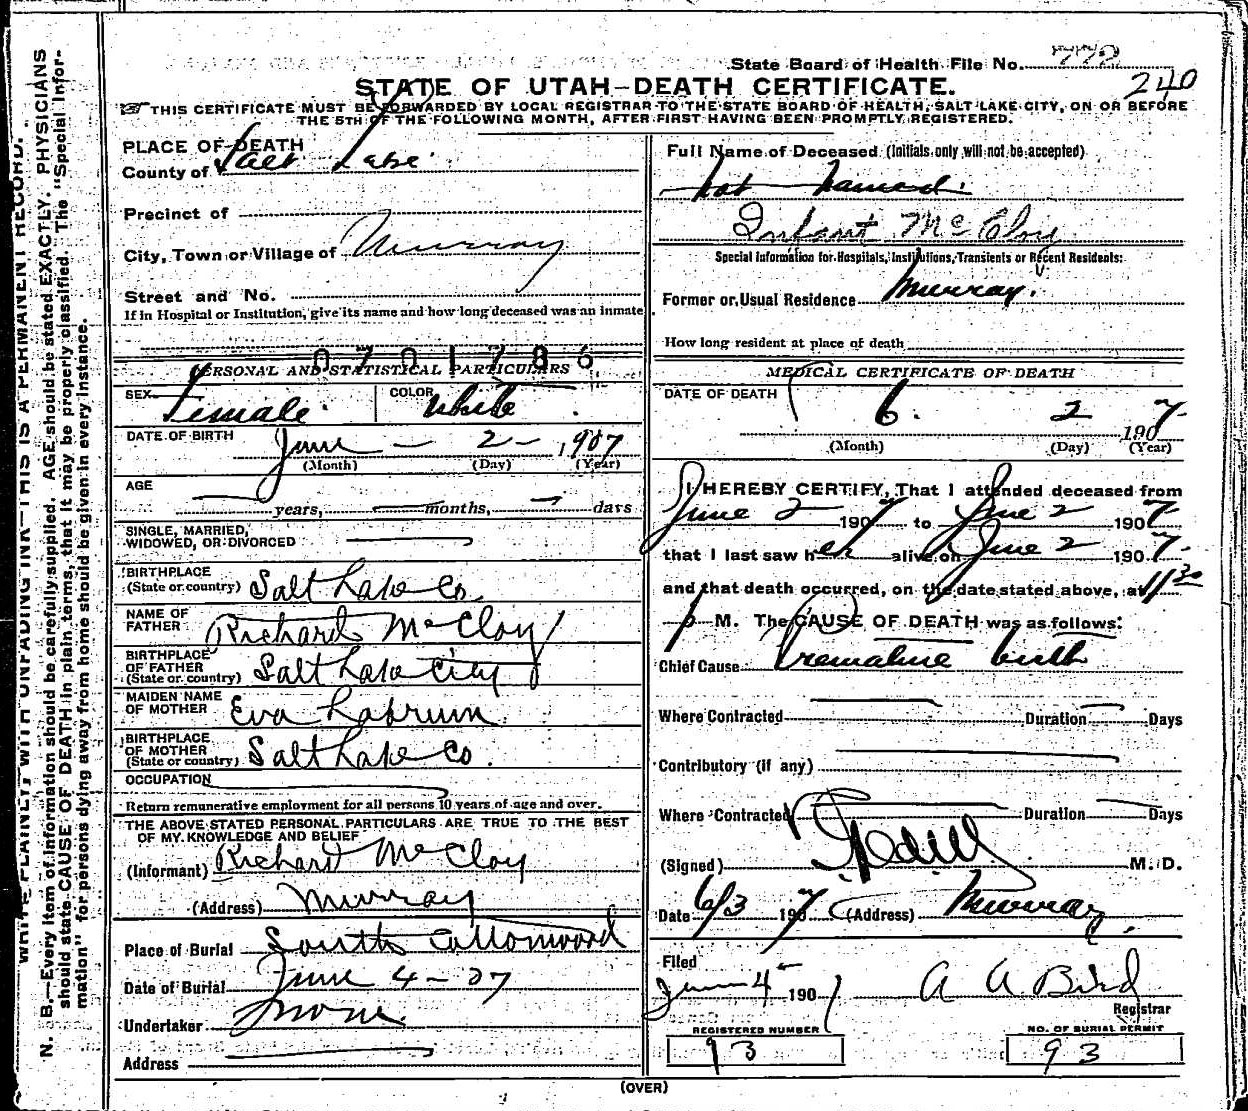 State Board of Health File No. 772
240
STATE OF UTAH—DEATH CERTIFICATE.
THIS CERTIFICATE MUST BE FORWARDED BY LOCAL REGISTRAR TO THE STATE BOARD OF HEALTH, SALT LAKE CITY, ON OR BEFORE
THE 5TH OF THE FOLLOWING MONTH, AFTER FIRST HAVING BEEN PROMPTLY REGISTERED.
WRITE PLAINLY WITH UNFADING INK—THIS IS A PERMANENT RECORD.
N. B.—Every item of information should be carefully supplied. AGE should be stated EXACTLY. PHYSICIANS
should state CAUSE OF DEATH in plain terms, that it may be properly classified. The "Special Infor-
mation" for persons dying away from home should be given in every instance.
PLACE OF DEATH
County of Salt Lake
Precinct of
City, Town or Village of Murray
Street and No.
If in Hospital or Institution, give its name and how long deceased was an inmate.
0701786
PERSONAL AND STATISTICAL PARTICULARS
SEX Female. COLOR White.
DATE OF BIRTH June — 2 — 1907
(Month) (Day) (Year)
AGE
years, months, days
SINGLE, MARRIED,
WIDOWED, OR DIVORCED
BIRTHPLACE
(State or country) Salt Lake Co.
NAME OF
FATHER Richard McCloy
BIRTHPLACE
OF FATHER
(State or country) Salt Lake City
MAIDEN NAME
OF MOTHER Eva Labrum
BIRTHPLACE
OF MOTHER
(State or country) Salt Lake Co.
OCCUPATION
Return remunerative employment for all persons 10 years of age and over.
THE ABOVE STATED PERSONAL PARTICULARS ARE TRUE TO THE BEST
OF MY KNOWLEDGE AND BELIEF
(Informant) Richard McCloy
(Address) Murray
Place of Burial South Cottonwood
Date of Burial June 4-07
Undertaker None
Address
Full Name of Deceased (Initials only will not be accepted)
not named.
Infant McCloy
Special Information for Hospitals, Institutions, Transients or Recent Residents:
Former or Usual Residence Murray.
How long resident at place of death
MEDICAL CERTIFICATE OF DEATH
DATE OF DEATH 6. 2 1907
(Month) (Day) (Year)
I HEREBY CERTIFY, That I attended deceased from
June 2 1907 to June 2 1907
that I last saw her alive on June 2 1907.
and that death occurred, on the date stated above, at 11 30
P M. The CAUSE OF DEATH was as follows:
Chief Cause Premature birth
Where Contracted Duration Days
Contributory (if any)
Where Contracted Duration Days
(Signed) M. D.
Date 6/3 1907 (Address) Murray.
Filed
June 4 190
A A Bird
Registrar
REGISTERED NUMBER
93
NO. OF BURIAL PERMIT
93
(OVER)